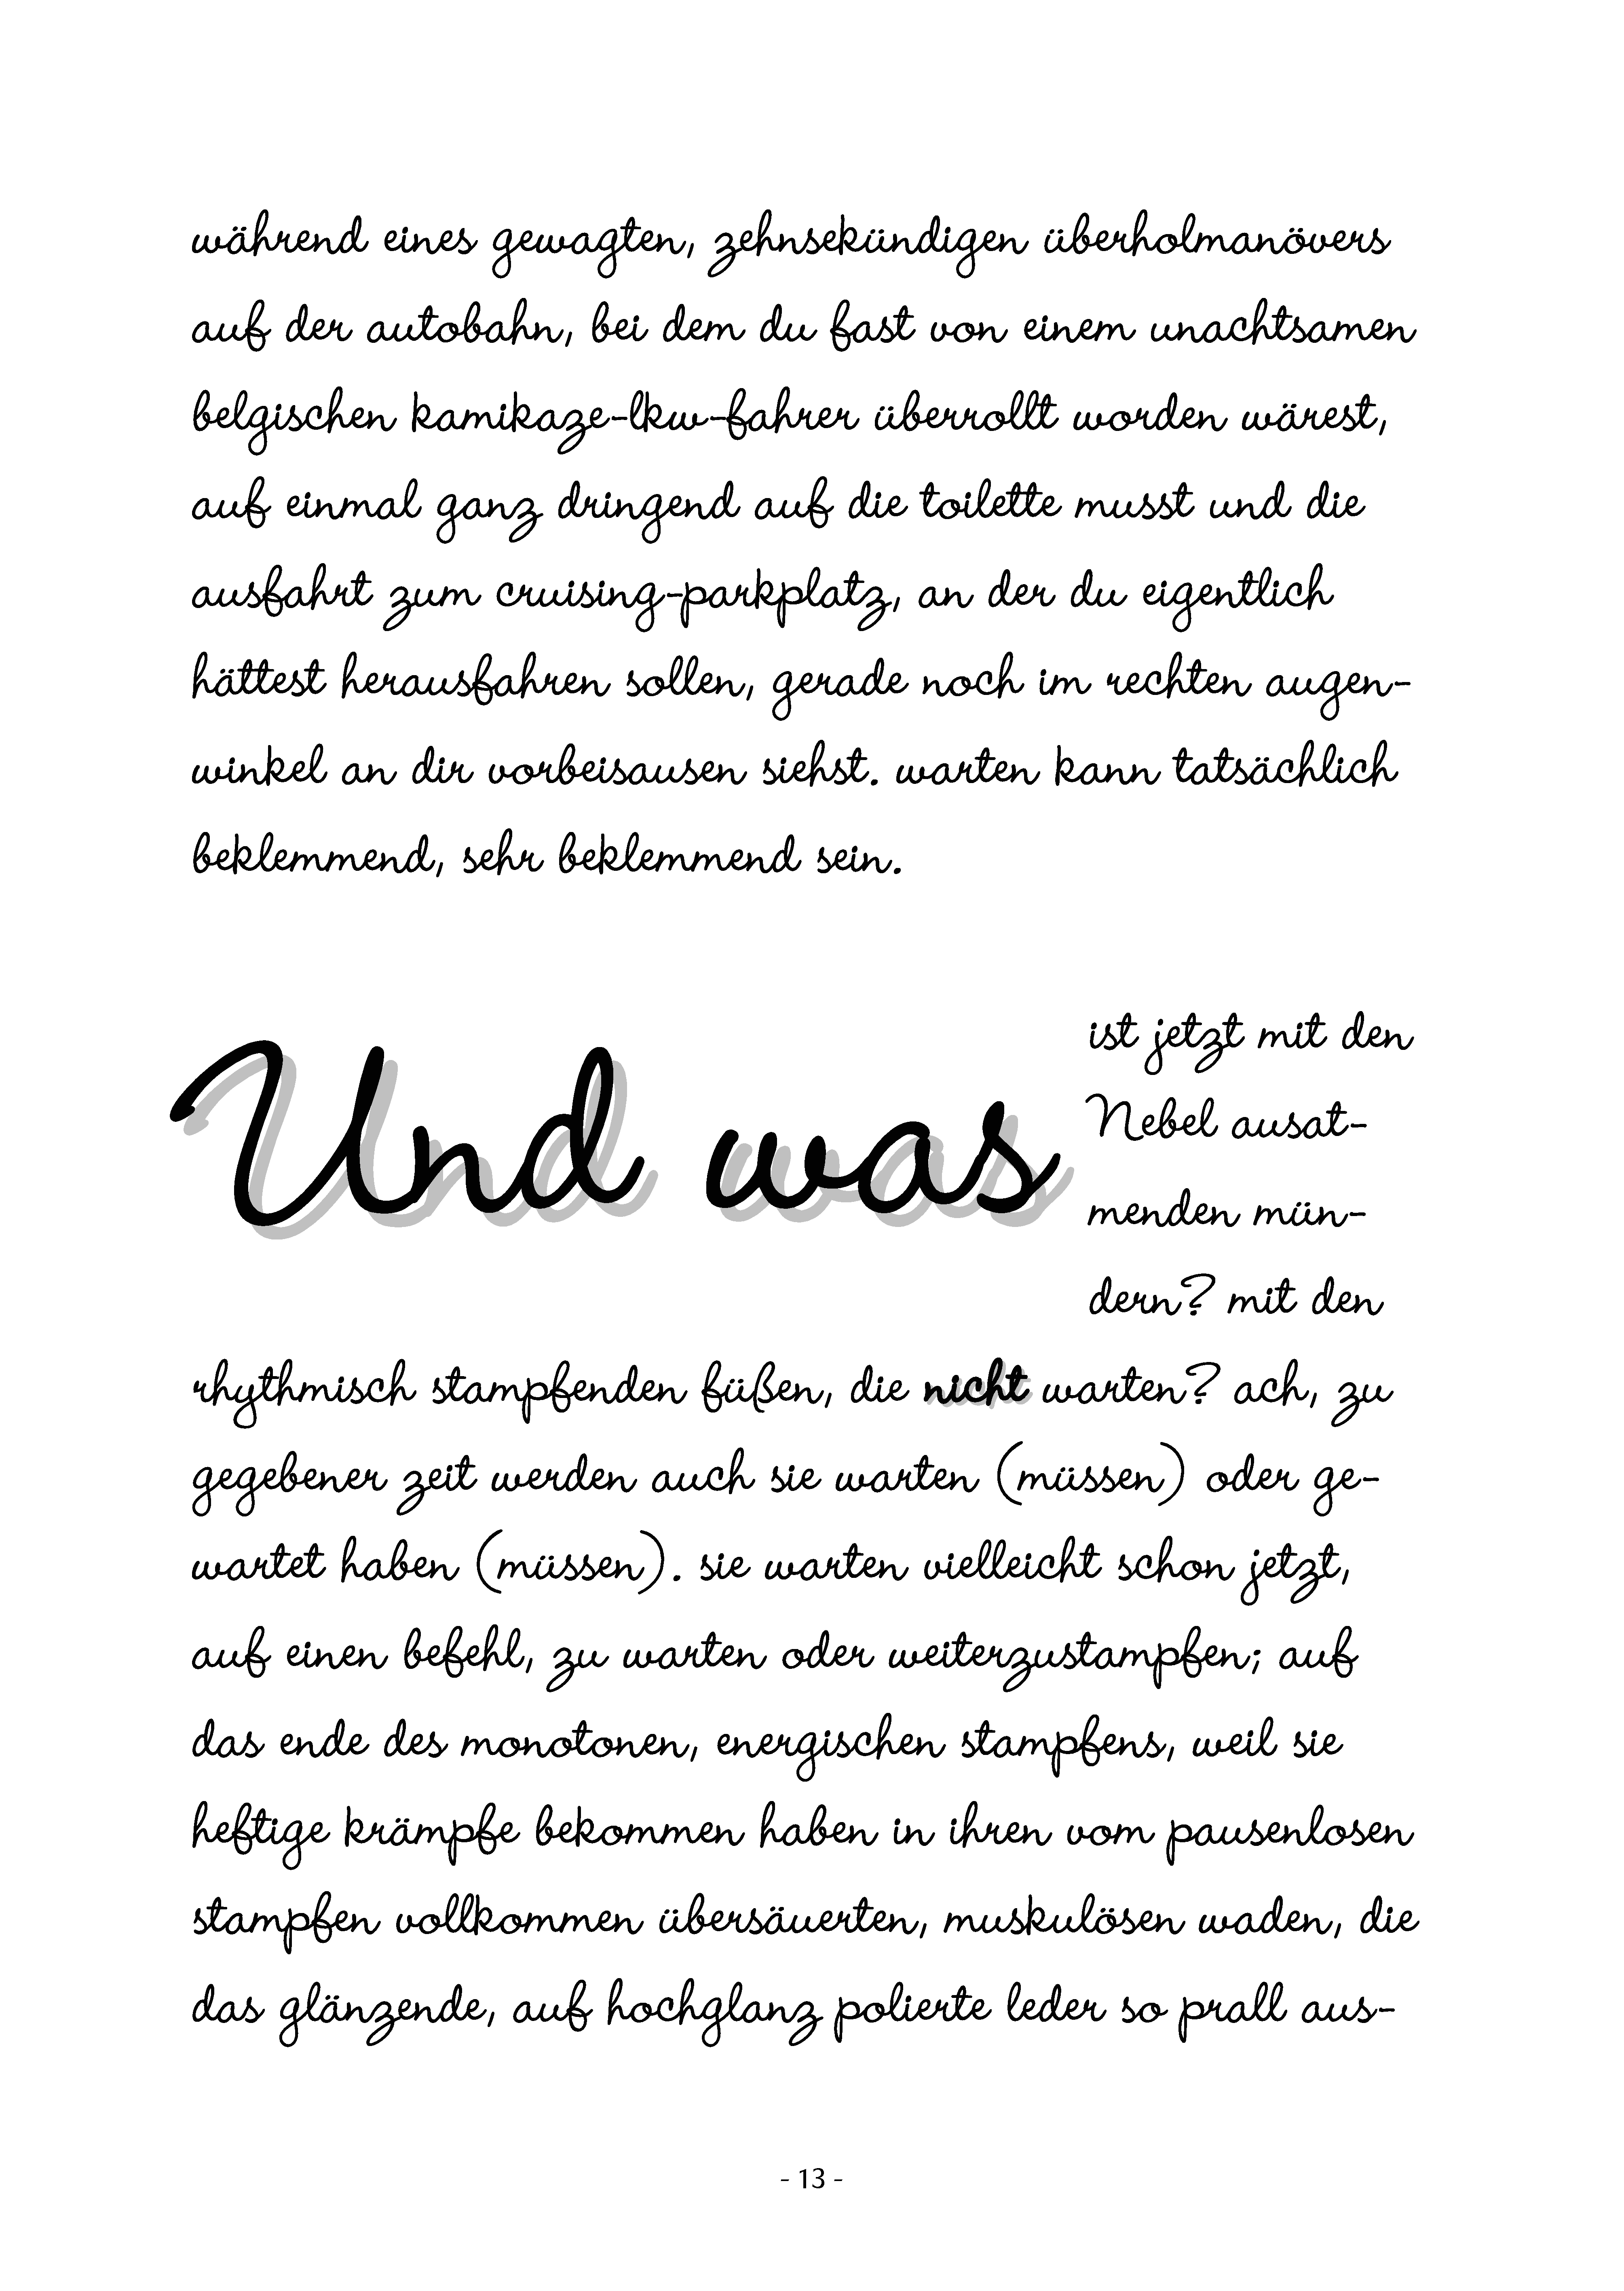 während eines gewagten, zehnsekündigen überholmanövers
auf der autobahn, bei dem du fast von einem unachtsamen
belgischen kamikaze-lkw-fahrer überrollt worden wärest,
auf einmal ganz dringend auf die toilette musst und die
ausfahrt zum cruising-parkplatz, an der du eigentlich
hättest herausfahren sollen, gerade noch im rechten augen-
winkel an dir vorbeisausen siehst. warten kann tatsächlich
beklemmend, sehr beklemmend sein.
Und was
ist jetzt mit den
Nebel ausat-
menden mün-
dern? mit den
rhythmisch stampfenden füßen, die nicht warten? ach, zu
gegebener zeit werden auch sie warten (müssen) oder ge-
wartet haben (müssen). sie warten vielleicht schon jetzt,
auf einen befehl, zu warten oder weiterzustampfen; auf
das ende des monotonen, energischen stampfens, weil sie
heftige krämpfe bekommen haben in ihren vom pausenlosen
stampfen vollkommen übersäuerten, muskulösen waden, die
das glänzende, auf hochglanz polierte leder so prall aus-
- 13 -